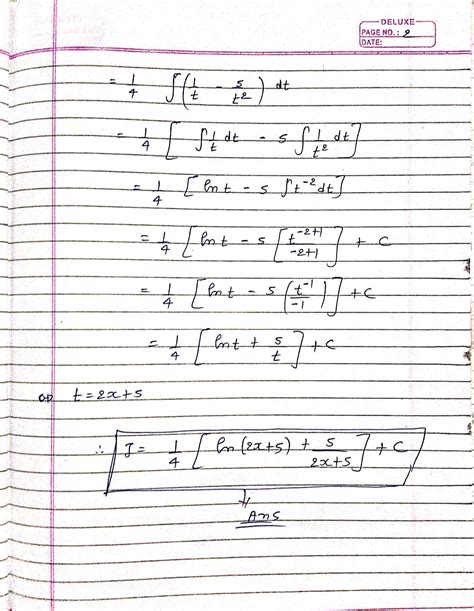 DELUXE
PAGE NO.: 2
DATE:
= 1/4 ∫ (1/t - 5/t²) dt
= 1/4 [ ∫ 1/t dt - 5 ∫ 1/t² dt ]
= 1/4 [ ln t - 5 ∫ t⁻² dt ]
= 1/4 [ ln t - 5 [ t⁻²⁺¹/-2+1 ] ] + C
= 1/4 [ ln t - 5 ( t⁻¹/-1 ) ] + C
= 1/4 [ ln t + 5/t ] + C
t = 2x+5
∴ I = 1/4 [ ln (2x+5) + 5/2x+5 ] + C
Ans